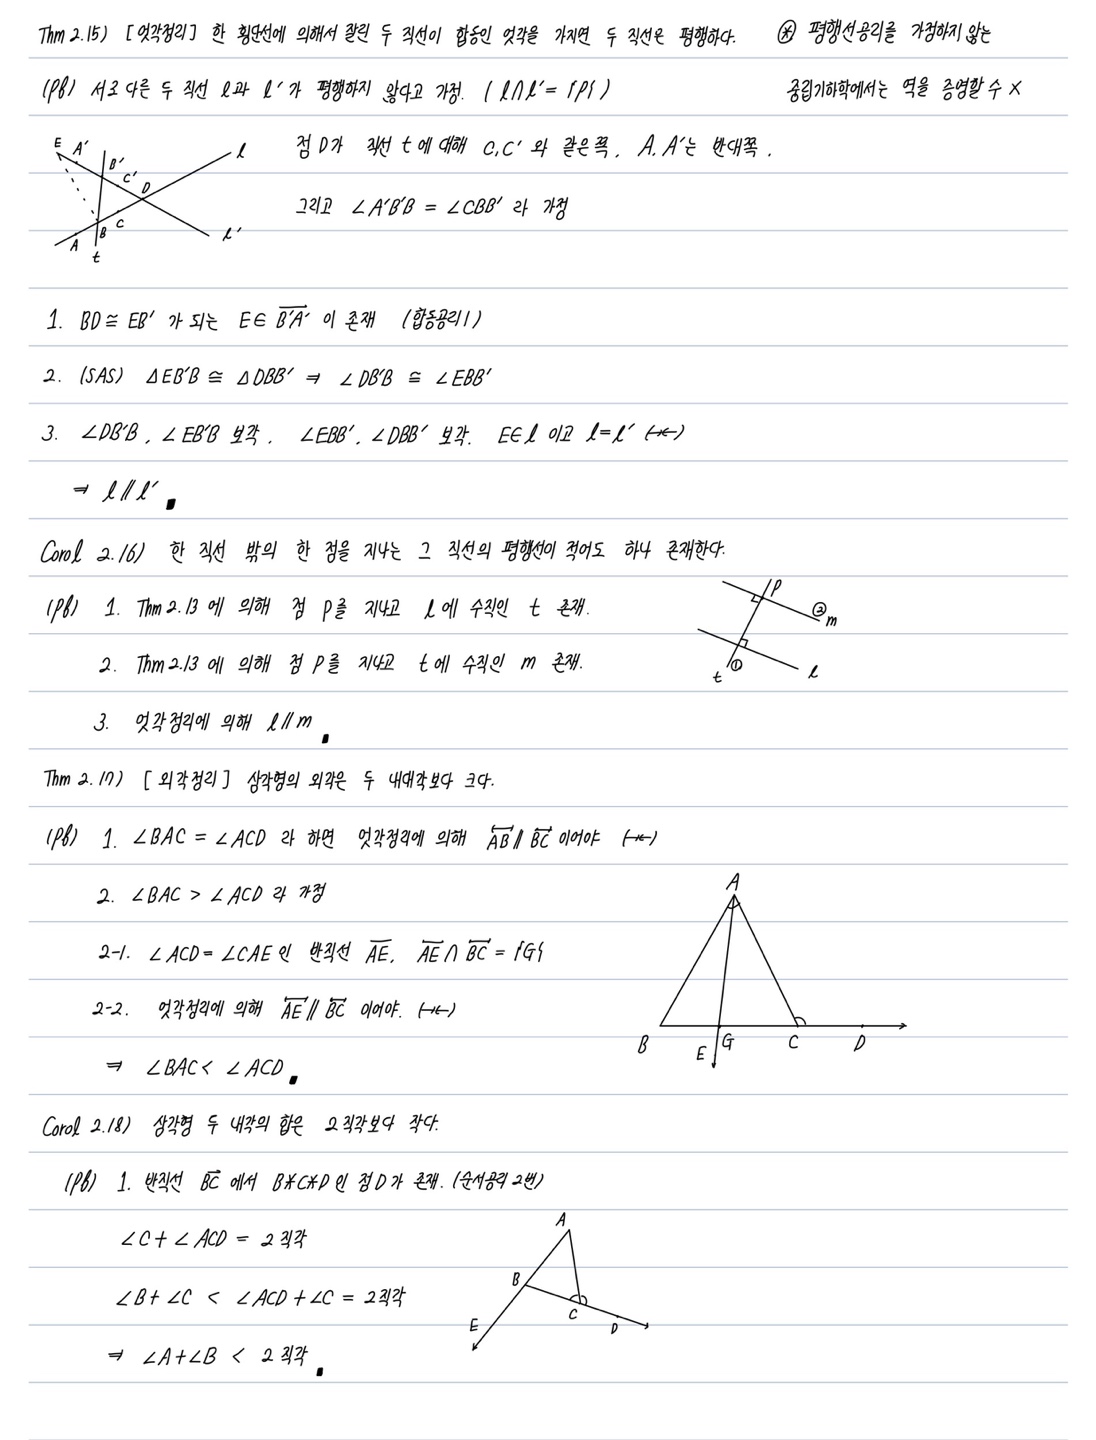 Thm 2.15) [엇각정리] 한 횡단선에 의해서 잘린 두 직선이 합동인 엇각을 가지면 두 직선은 평행하다.
⊛ 평행선공리를 가정하지 않는
중립기하학에서는 역을 증명할 수 X
(pf) 서로 다른 두 직선 l과 l'가 평행하지 않다고 가정. ( l∩l' = {P} )
점 D가 직선 t에 대해 C, C'와 같은쪽, A, A'는 반대쪽.
그리고 ∠A'B'B = ∠CBB' 라 가정
E A' B' C' D l
A B C l'
t
1. BD ≅ EB' 가 되는 E∈ B'A' 이 존재 (합동공리1)
2. (SAS) △EB'B ≅ △DBB' ⇒ ∠DB'B ≅ ∠EBB'
3. ∠DB'B, ∠EB'B 보각, ∠EBB', ∠DBB' 보각. E∈l 이고 l=l' (→←)
⇒ l // l' ∎
Corol 2.16) 한 직선 밖의 한 점을 지나는 그 직선의 평행선이 적어도 하나 존재한다.
(pf) 1. Thm 2.13 에 의해 점 P를 지나고 l에 수직인 t 존재.
2. Thm 2.13 에 의해 점 P를 지나고 t에 수직인 m 존재.
3. 엇각정리에 의해 l // m ∎
P
② m
t ① l
Thm 2.17) [외각정리] 삼각형의 외각은 두 내대각보다 크다.
(pf) 1. ∠BAC = ∠ACD 라 하면 엇각정리에 의해 AB // BC 이어야 (→←)
2. ∠BAC > ∠ACD 라 가정
2-1. ∠ACD = ∠CAE 인 반직선 AE, AE ∩ BC = {G}
2-2. 엇각정리에 의해 AE // BC 이어야. (→←)
⇒ ∠BAC < ∠ACD ∎
A
B E G C D
Corol 2.18) 삼각형 두 내각의 합은 2직각보다 작다.
(pf) 1. 반직선 BC 에서 B*C*D인 점 D가 존재. (순서공리 2번)
∠C + ∠ACD = 2직각
∠B + ∠C < ∠ACD + ∠C = 2직각
⇒ ∠A + ∠B < 2직각 ∎
A
B
E C D